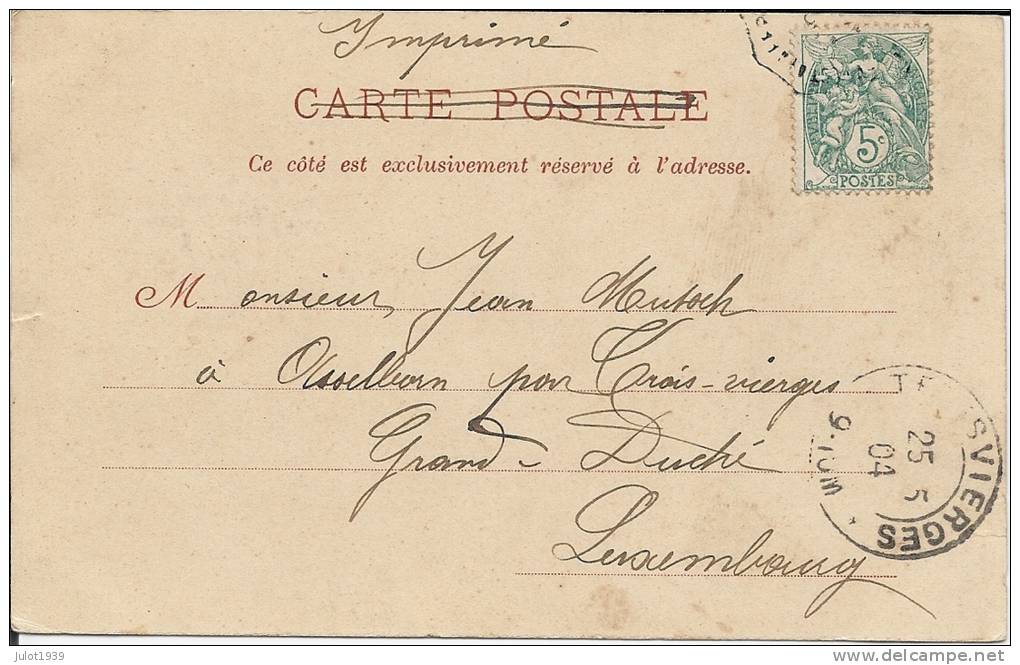 Imprimé
CARTE POSTALE
Ce côté est exclusivement réservé à l'adresse.
5c
POSTES
Monsieur, Jean Mutsch
à Asselborn par Trois-vierges
Grand-Duché
Luxembourg
SVIERGES
25 5
04
julot1939
delcampe.net